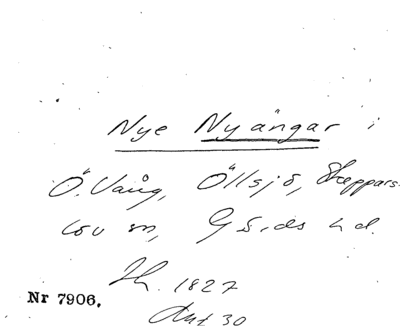 Nye Nyängar i
Ö. Vång, Öllsjö, Skeppars-
löv sn, Gärds hd.
1827
Nr 7906.
Akt 30